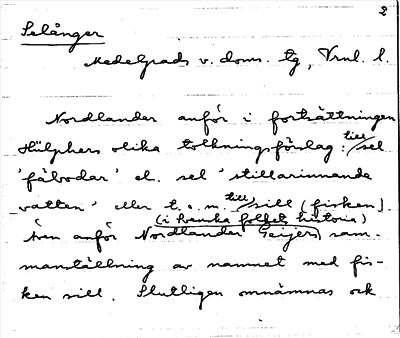 2
Selånger
Medelpads v. doms. tg, Vrnl. l.
Nordlander anför i fortsättningen
Hülphers olika tolkningsförslag: till sel
'fäbodar' el. sel 'stillarinnande
vatten' eller t.o.m. till sill (fisken).
Även anför Nordlander (i Svenska folkets historia) Geijers sam-
manställning av namnet med fis-
ken sill. Slutligen omnämnas ock